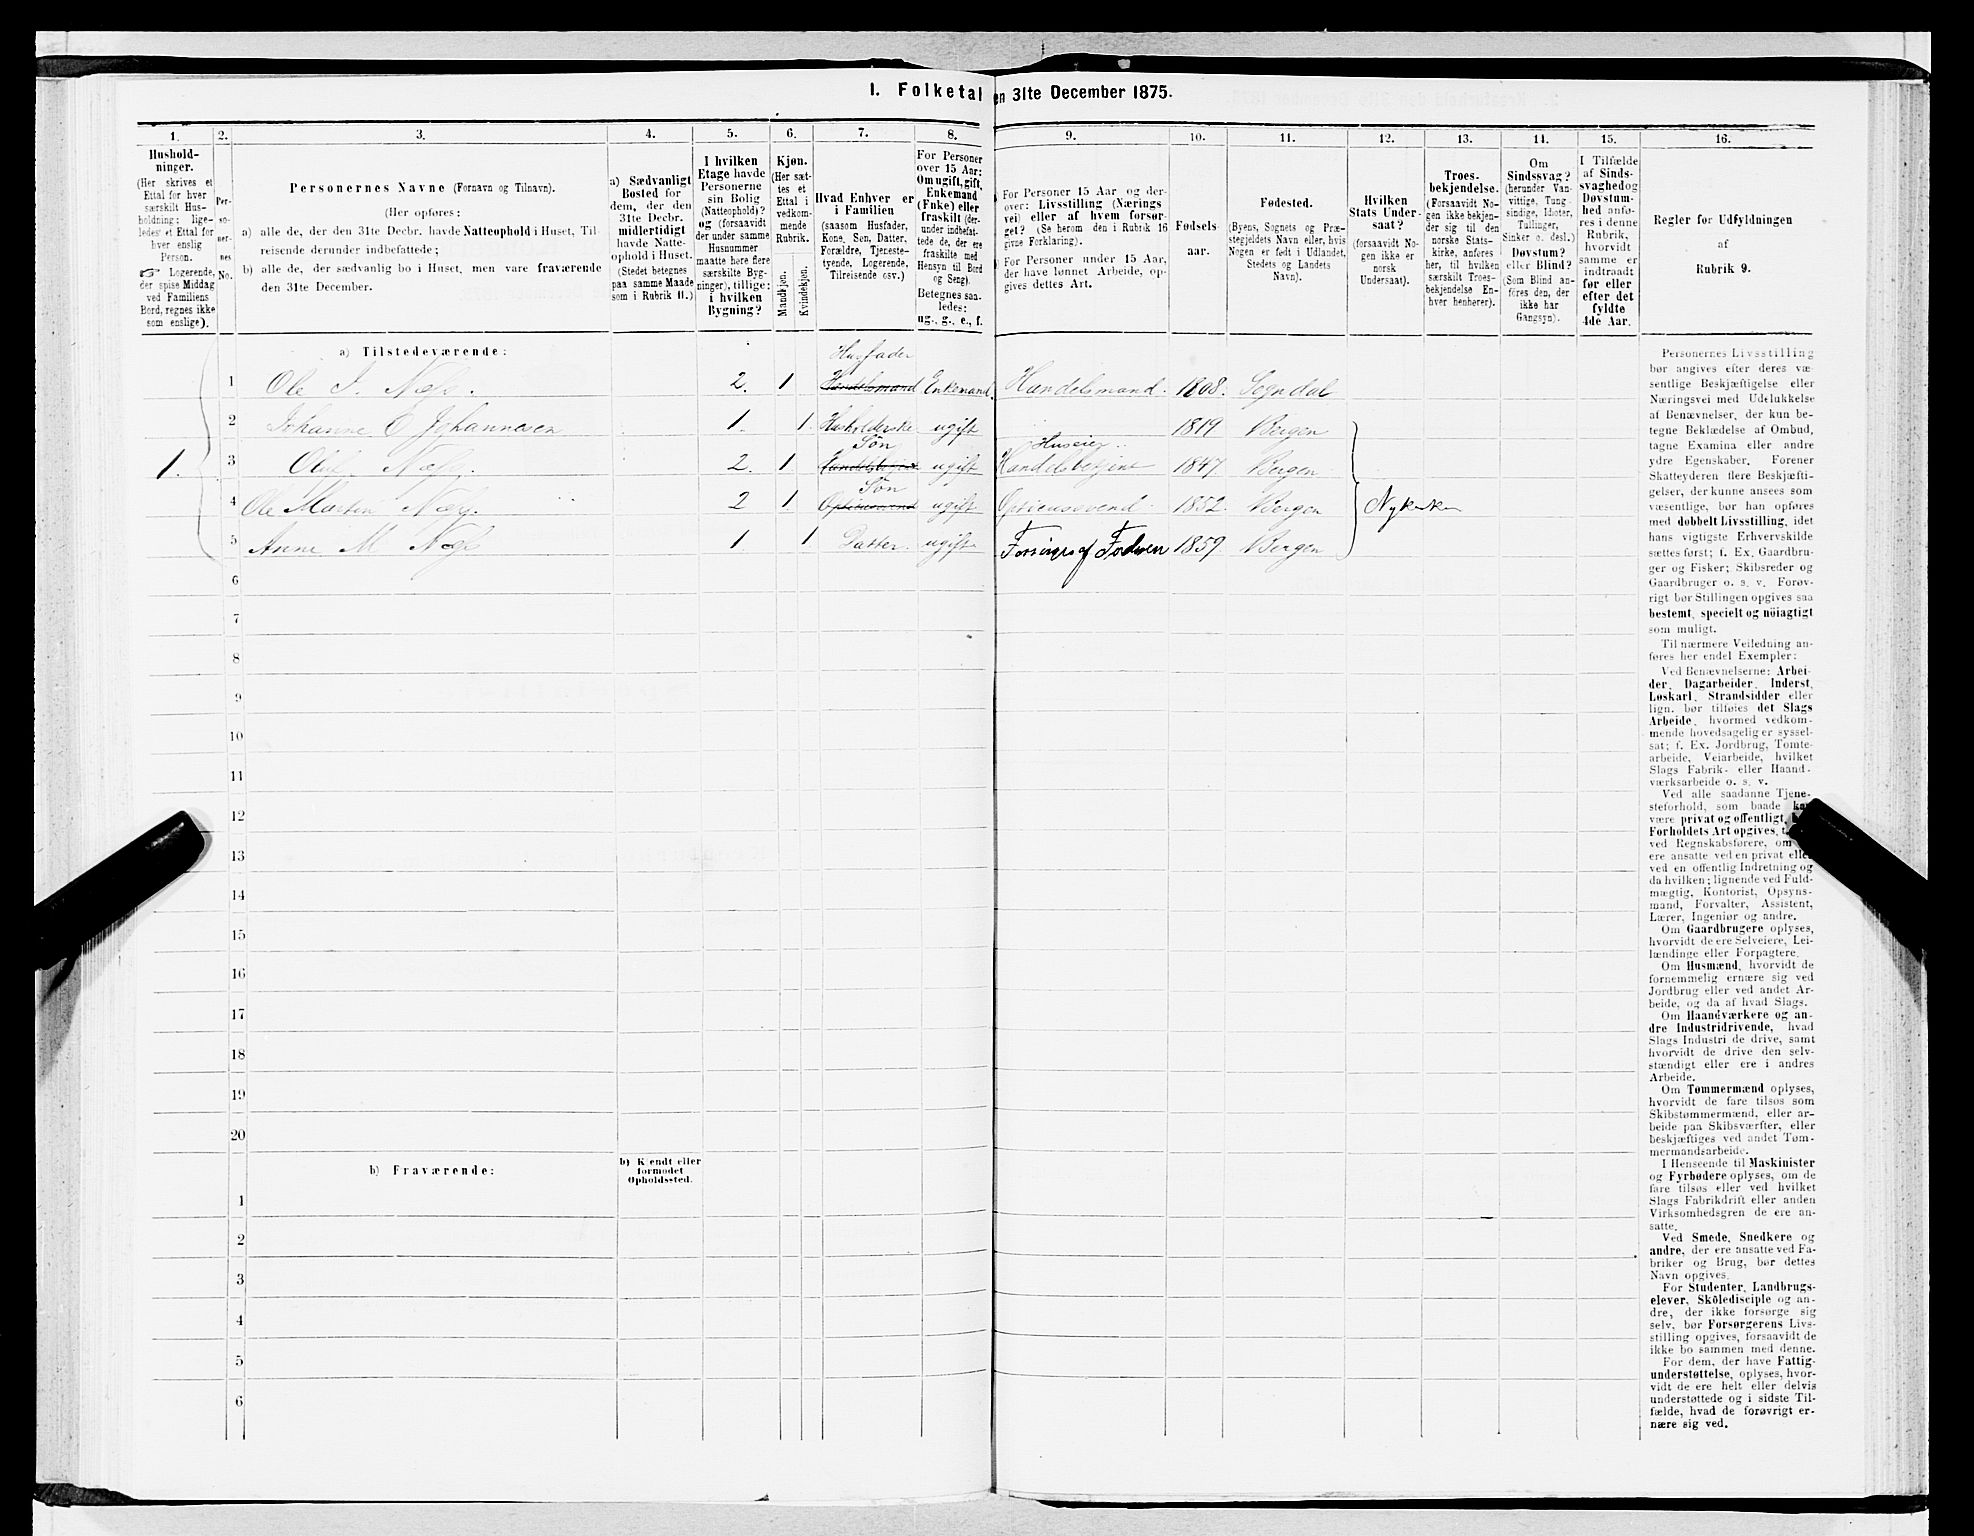 I. Folketal en 31te December 1875.
1.
Hushold-
ninger.
(Her skrives et
Ettal for hver
særskilt Hus-
holdning; lige-
ledes et Ettal for
hver enslig
Person.
☞ Logerende,
der spise Middag
ved Familiens
Bord, regnes ikke
som enslige).
2.
Per-
so-
ner-
nes
No.
3.
Personernes Navne (Fornavn og Tilnavn).
(Her opføres:
a) alle de, der den 31te Decbr. havde Natteophold i Huset, Til-
reisende derunder indbefattede;
b) alle de, der sædvanlig bo i Huset, men vare fraværende
den 31te December.
4.
a) Sædvanligt
Bosted for
dem, der den
31te Decbr.
midlertidigt
havde Natte-
ophold i Huset.
(Stedet betegnes
paa samme Maade
som i Rubrik 11.)
5.
I hvilken
Etage havde
Personerne
sin Bolig
(Natteophold)?
og (forsaavidt
der under samme
Husnummer
maatte høre flere
særskilte Byg-
ninger), tillige:
i hvilken
Bygning?
6.
Kjøn.
(Her sæt-
tes et
Ettal i
vedkom-
mende
Rubrik.
Mandkjøn.
Kvindekjøn.
7.
Hvad Enhver er
i Familien
(saasom Husfader,
Kone, Søn, Datter,
Forældre, Tjeneste-
tyende, Logerende,
Tilreisende osv.)
8.
For Personer
over 15 Aar:
Om ugift, gift,
Enkemand
(Enke) eller
fraskilt (der-
under indbefat-
tede de, der ere
fraskilte med
Hensyn til Bord
og Seng).
Betegnes saa-
ledes:
ug., g., e., f.
9.
For Personer 15 Aar og der-
over: Livsstilling (Nærings
vei) eller af hvem forsør-
get? (Se herom den i Rubrik 16
givne Forklaring).
For Personer under 15 Aar,
der have lønnet Arbeide, op-
gives dettes Art.
10.
Fødsels-
aar.
11.
Fødested.
(Byens, Sognets og Præ-
stegjeldets Navn eller, hvis
Nogen er født i Udlandet,
Stedets og Landets
Navn).
12.
Hvilken
Stats Under-
saat?
(forsaavidt No-
gen ikke er
norsk
Undersaat).
13.
Troes-
bekjendelse.
(Forsaavidt No-
gen ikke bekjen-
der sig til den
norske Stats-
kirke, anføres
her, til hvilken
særskilt Troes-
bekjendelse En-
hver henhører).
14.
Om
Sindssvag?
(herunder Van-
vittige, Tung-
sindige, Idioter,
Tullinger,
Sinker o. desl.)
Døvstum?
eller Blind?
(Som Blind an-
føres den, der
ikke har
Gangsyn).
15.
I Tilfælde
af Sinds-
svaghed og
Døvstum-
hed anfø-
res i denne
Rubrik,
hvorvidt
samme er
indtraadt
før eller
efter det
fyldte
4de Aar.
16.
Regler for Udfyldningen
af
Rubrik 9.
a) Tilstedeværende:
1 Ole I. Næss. 2. 1 Husfader Handelsmand Enkemand. Handelsmand. 1808. Sogndal
2 Johanne O Johannesen 1. 1. Husholderske ugift 1819 Bergen
1. 3 Oluf Næss. 2. 1 Søn Handelsbetjent ugift Huseier. Handelsbetjent 1847. Bergen
4 Ole Martin Næss. 2 1. Søn Optikersvend ugift 1852. Bergen Nykirken
5 Anne M Næss 1 1. Datter. ugift Forsørges af Faderen 1859. Bergen
6
7
8
9
10
11
12
13
14
15
16
17
18
19
20
b) Fraværende:
b) Kjendt eller
formodet
Opholdssted.
1
2
3
4
5
6
Personernes Livsstilling
bør angives efter deres væ-
sentlige Beskjæftigelse eller
Næringsvei med Udelukkelse
af Benævnelser, der kun be-
tegne Beklædelse af Ombud,
tagne Examina eller andre
ydre Egenskaber. Forener
Skatteyderen flere Beskjæfti-
gelser, der kunne ansees som
væsentlige, bør han opføres
med dobbelt Livsstilling, idet
hans vigtigste Erhvervskilde
sættes først; f. Ex. Gaardbru-
ger og Fisker; Skibsreder og
Gaardbruger o. s. v. Forøv-
rigt bør Stillingen opgives saa
bestemt, specielt og nöiagtigt
som muligt.
Til nærmere Veiledning an-
føres her endel Exempler:
Ved Benævnelserne: Arbei-
der, Dagarbeider, Inderst,
Løskarl, Strandsidder eller
lign. bør tilføies det Slags
Arbeide, hvormed vedkom-
mende hovedsagelig er syssel-
sat; f. Ex. Jordbrug, Tomte-
arbeide, Veiarbeide, hvilket
Slags Fabrik- eller Haand-
værksarbeide o. s. v.
Ved alle saadanne Tjene-
steforhold, som baade kan
være privat og offentligt,
Forholdets Art opgives,
ved Regnskabsførere, om
ere ansatte ved en privat eller
ved en offentlig Indretning og
da hvilken; lignende ved Fuld-
mægtig, Kontorist, Opsyns-
mand, Forvalter, Assistent,
Lærer, Ingeniør og andre.
Om Gaardbrugere oplyses,
hvorvidt de ere Selveiere, Lei-
lændinge eller Forpagtere.
Om Husmænd, hvorvidt de
fornemmelig ernære sig ved
Jordbrug eller ved andet Ar-
beide, og da af hvad Slags.
Om Haandværkere og an-
dre Industridrivende, hvad
Slags Industri de drive, samt
hvorvidt de drive den selv-
stændigt eller ere i andres
Arbeide.
Om Tømmermænd oplyses,
hvorvidt de fare tilsøs som
Skibstømmermænd, eller ar-
beide paa Skibsværfter, eller
beskjæftiges ved andet Tøm-
mermandsarbeide.
I Henseende til Maskinister
og Fyrbødere oplyses, om de
fare tilsøs eller ved hvilket
Slags Fabrikdrift eller anden
Virksomhedsgren de ere an-
satte.
Ved Smede, Snedkere og
andre, der ere ansatte ved Fa-
briker og Brug, bør dettes
Navn opgives.
For Studenter, Landbrugs-
elever, Skölediscíple og an-
dre, der ikke forsørge sig
selv, bør Forsørgerens Livs-
stilling opgives, forsaavidt de
ikke bo sammen med denne.
For dem, der have Fattig-
understøttelse, oplyses, hvor-
vidt de ere helt eller delvis
understøttede og i sidste Til-
fælde, hvad de forøvrigt er-
nære sig ved.